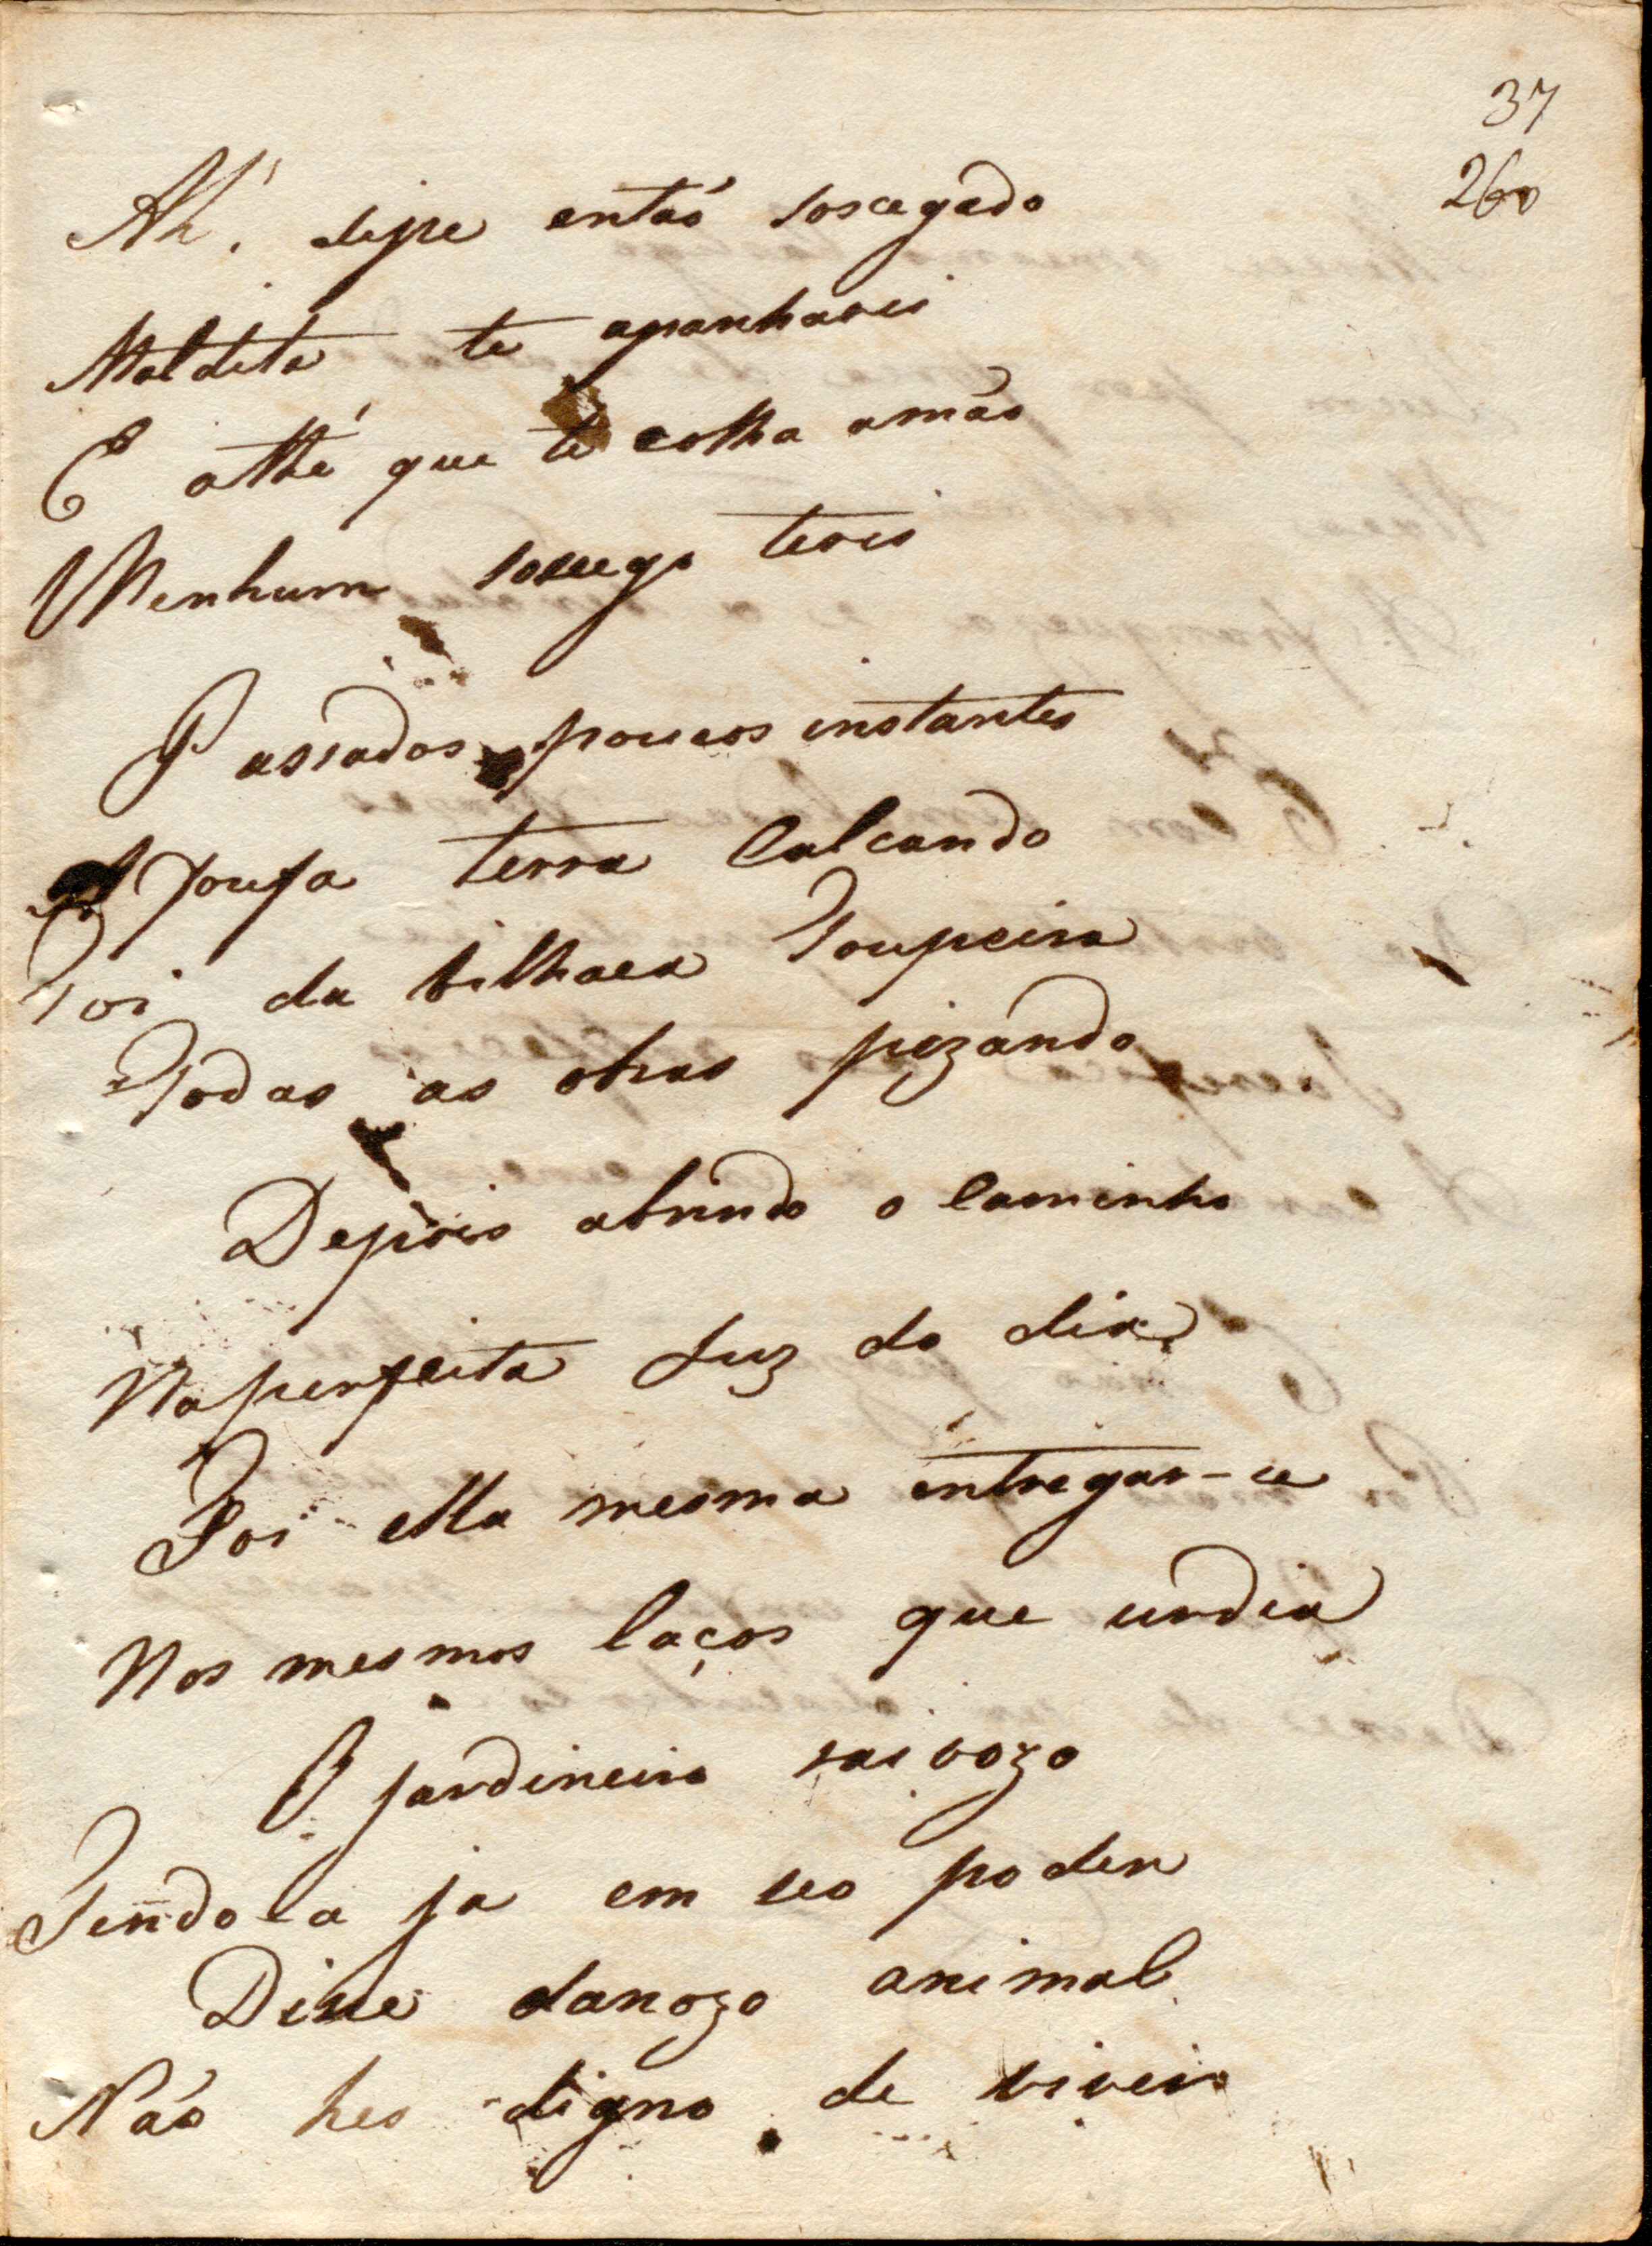 37
260
Ah'. disse então soscegado
Maldita te apanharei
E athé que te colha amão
Nenhum socego terei
Passados poucos instantes
A foufa terra Calcando
Foi da velhaca Toupeira
Todas as obras pizando
Depois abrindo o Caminho
Na perfeita Luz do dia
Foi ella mesma entregar-se
Nos mesmos laços que urdia
O jardineiro raivozo
Tendo-a ja em seo poder
Disse danozo animal
Não hes digno de viveir